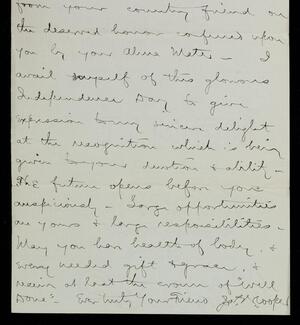 from your country friend on
the deserved honor conferred upon
you by your Alma Mater - I
avail myself of this glorious
Independence Day to give
expression to my sincere delight
at the recognition which is being
given to your devotion & ability -
The future opens before you
auspiciously - Large opportunities
are yours & large responsibilities -
May you have health of body, &
every needed gift & grace, &
receive at last the crown of "Well
Done" - Your Friend Cooper